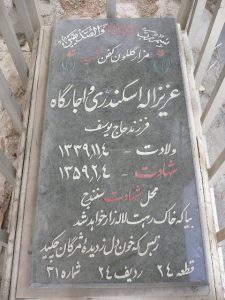 مزار گلگون کفن
عزیزاله اسکندری واجارگاه
فرزند حاج یوسف
ولادت - ۱۳۳۹،۱۱،۴
شهادت - ۱۳۵۹،۲،۴
محل شهادت سنندج
بیا که خاک رهت لاله زار خواهد شد
زبس که خون دل زدیده مژگان چکید
قطعه ۲۴ ردیف ۲۴ شماره ۳۱